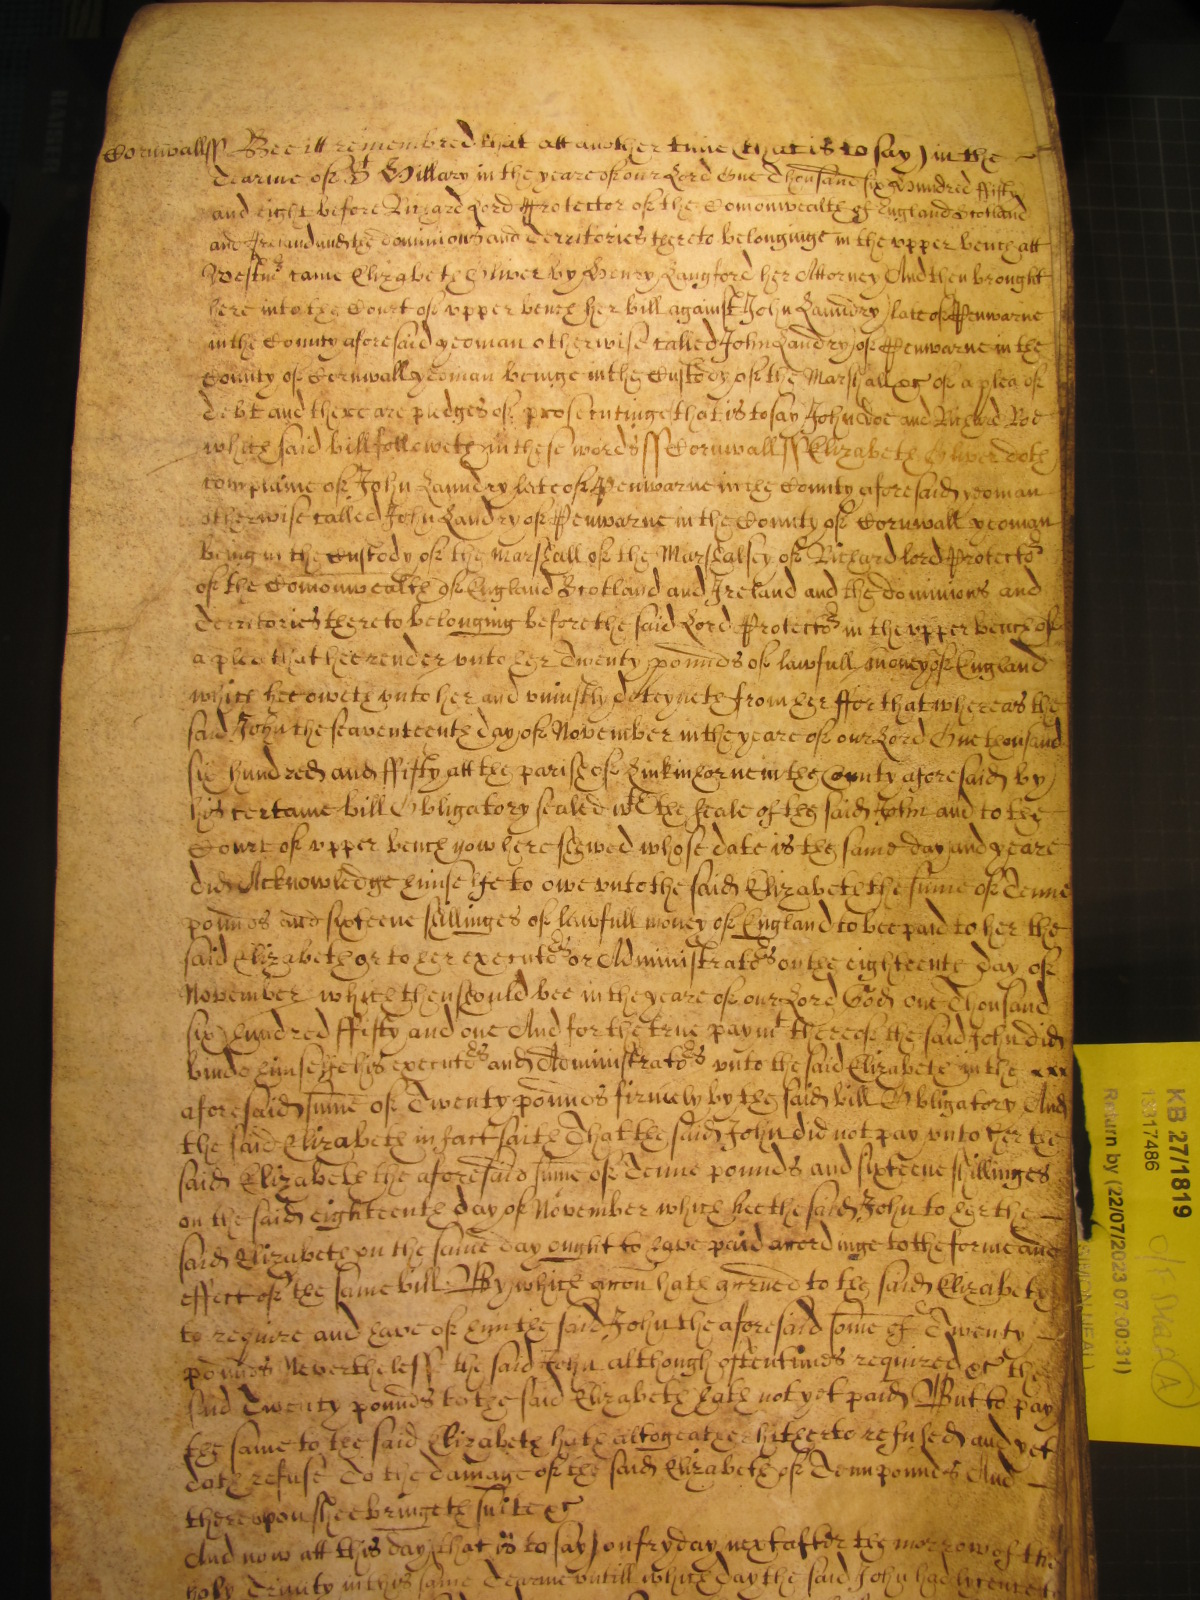 Cornwall ss Bee itt remembred that att another time (that is to say) in the
Tearme of St Hillary in the yeare of our Lord One Thousand six Hundred ffifty
and eight before Richard Lord Protector of the Comonwealth of England Scotland
and Ireland and the dominions and Territories thereto belonginge in the upper bench att
Westmr came Elizabeth Oliver by Henry Langford her Attorney And then brought
here into the Court of upper bench her bill against John Laundry late of Penwarne
in the County aforesaid yeoman otherwise called John Landry of Penwarne in the
County of Cornwall yeoman beinge in the Custody of the Marshall &c of a plea of
debt and there are pledges of prosecutinge that is to say John doe and Richard Roe
which said bill followeth in these words ss Cornwall ss Elizabeth Oliver doth
complaine of John Laundry late of Penwarne in the County aforesaid yeoman
otherwise called John Landry of Penwarne in the County of Cornwall yeoman
being in the Custody of the Marshall of the Marshalsey of Richard lord Protector
of the Comonwealth of England Scotland and Ireland and the dominions and
Territories thereto belonging before the said Lord Protector in the upper bench of
a plea that hee render unto her Twenty pounds of lawfull money of England
which hee oweth unto her and uniustly deteyneth from her ffor that whereas the
said John the seaventeenth day of November in the yeare of our Lord One thousand
six hundred and ffifty att the parish of Linkinhorne in the County aforesaid by
his certaine bill Obligatory sealed wth the seale of the said John and to the
Court of upper bench now here shewed whose date is the same day and yeare
did Acknowledge himselfe to owe unto the said Elizabeth the sume of Tenne
pounds and sixteene shillinges of lawfull money of England to bee paid to her the
said Elizabeth or to her executors or Administrators on the eighteenth day of
November which then should bee in the yeare of our Lord God one Thousand
six hundred ffifty and one And for the true paymt thereof the said John did
binde himselfe his executors and Administrators unto the said Elizabeth in the
aforesaid sume of Twenty pounds firmely by the said bill Obligatory And
the said Elizabeth in fact saith That the said John did not pay unto her the
said Elizabeth the aforesaid sume of Tenne pounds and sixteene shillinges
on the said eighteenth day of November which hee the said John to her the
said Elizabeth on the same day ought to have paid accordinge to the forme and
effect of the same bill By which accon hath accrued to the said Elizabeth
to require and have of him the said John the aforesaid some of Twenty
pounds Neverthelesse the said John although oftentimes required &c the
said Twenty pounds to the said Elizabeth hath not yet paid But to pay
the same to the said Elizabeth hath altogeather hitherto refused and yet
doth refuse To the damage of the said Elizabeth of Tenn pounds And
thereupon shee bringeth suite &c
And now att this day (that is to say) on fryday next after the morrow of the
holy Trinity in this same Tearme untill which day the said John had lycence to
KB 27/1819
1317486
Return by (22/07/2023 07:00:31)